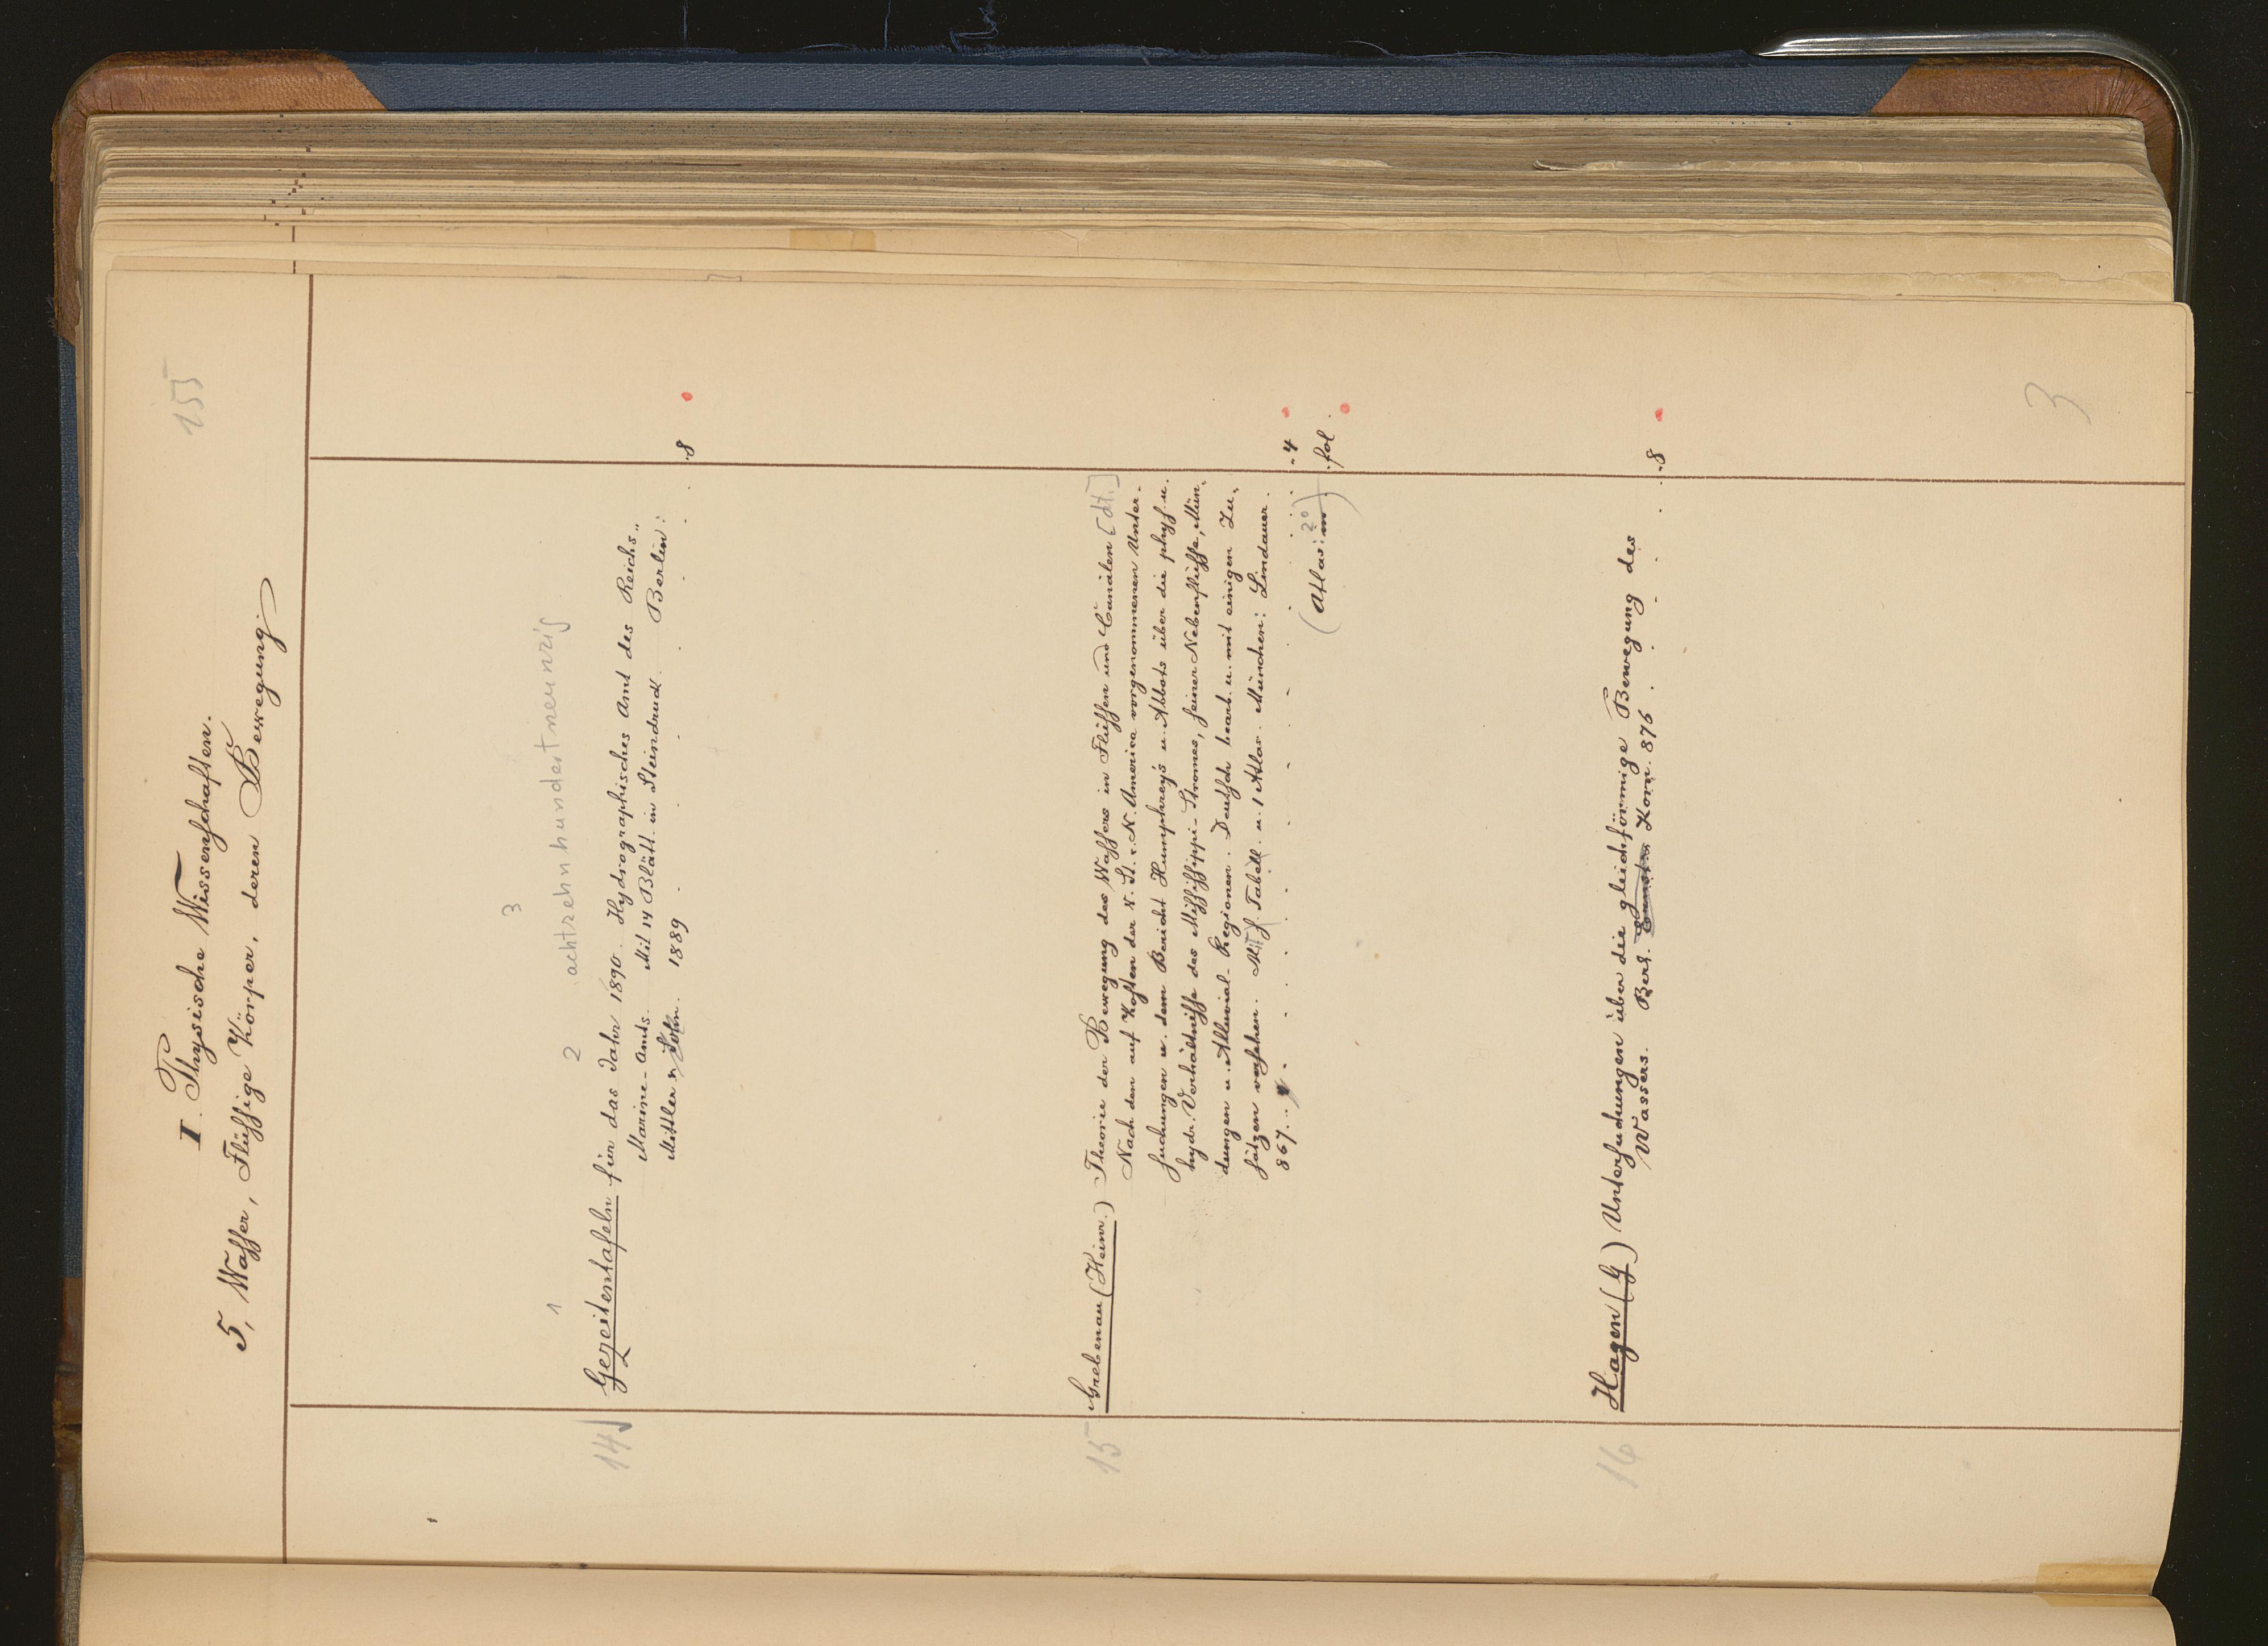 155
I. Physische Wissenschaften.
5, Wasser, Flüssige Körper, deren Bewegung.
3
1 2 achtzehnhundertneunzig
14 Gezeitentafeln für das Jahr 1890. Hydrographisches Amt des Reichs-
Marine-Amts. Mit 14 Blätt. in Steindruck. Berlin:
Mittler u. Sohn. 1889 . . . . . . . . 8
15 Grebenau (Heinr.) Theorie der Bewegung des Wassers in Flüssen und Canälen [dt.]
Nach den auf Kosten der V. St. v. N. America vorgenommenen Unter-
suchungen u. dem Bericht Humphrey's u. Abbots über die phys. u.
hydr. Verhältnisse des Mississippi-Stromes, seiner Nebenflüsse, Mün-
dungen u. Alluvial-Regionen. Deutsch bearb. u. mit einigen Zu-
sätzen versehen. Mit Tabell. u. 1 Atlas. München: Lindauer.
867. . . . . . . . . . 4
(Atlas: in 2°) fol.
16 Hagen (G) Untersuchungen über die gleichförmige Bewegung des
Wassers. Berl. Ernst u. Korn. 876 . . . . . 8
3